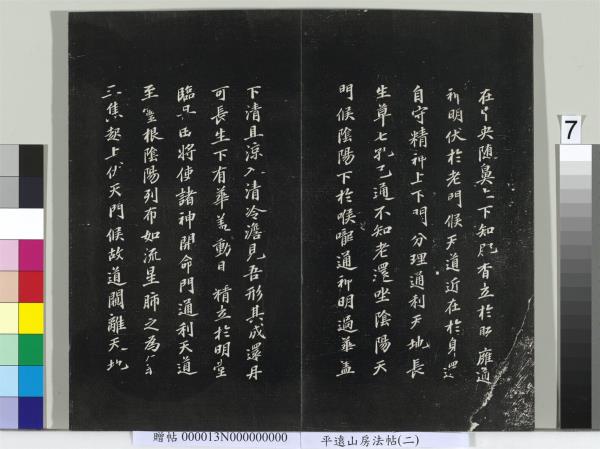 在中央随鼻上下知肥香立於
神明伏於老門候天道近在於身還
自守精神上下門分理通利天地長
生草七孔已通不知老還坐陰陽天
門候陰陽下於喉嚨通神明過華蓋
下清且涼入清泠淵見吾形其成還丹
可長生下有華蓋動日精立於明堂
臨丹田將使諸神開命門通利天道
至靈根陰陽列布如流星肺之為氣
三焦起上伏天門候故道闚離天地
7
贈帖 000013N000000000
平遠山房法帖(二)